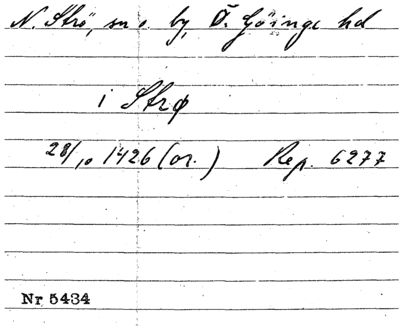 N. Strö, sn o. by, Ö. Göinge hd
i Strø
28/10 1426 (or.) Rep. 6277
Nr 5434